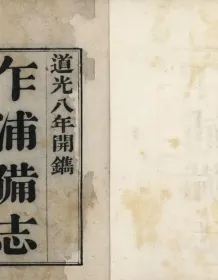 道光八年開鐫
乍浦備志